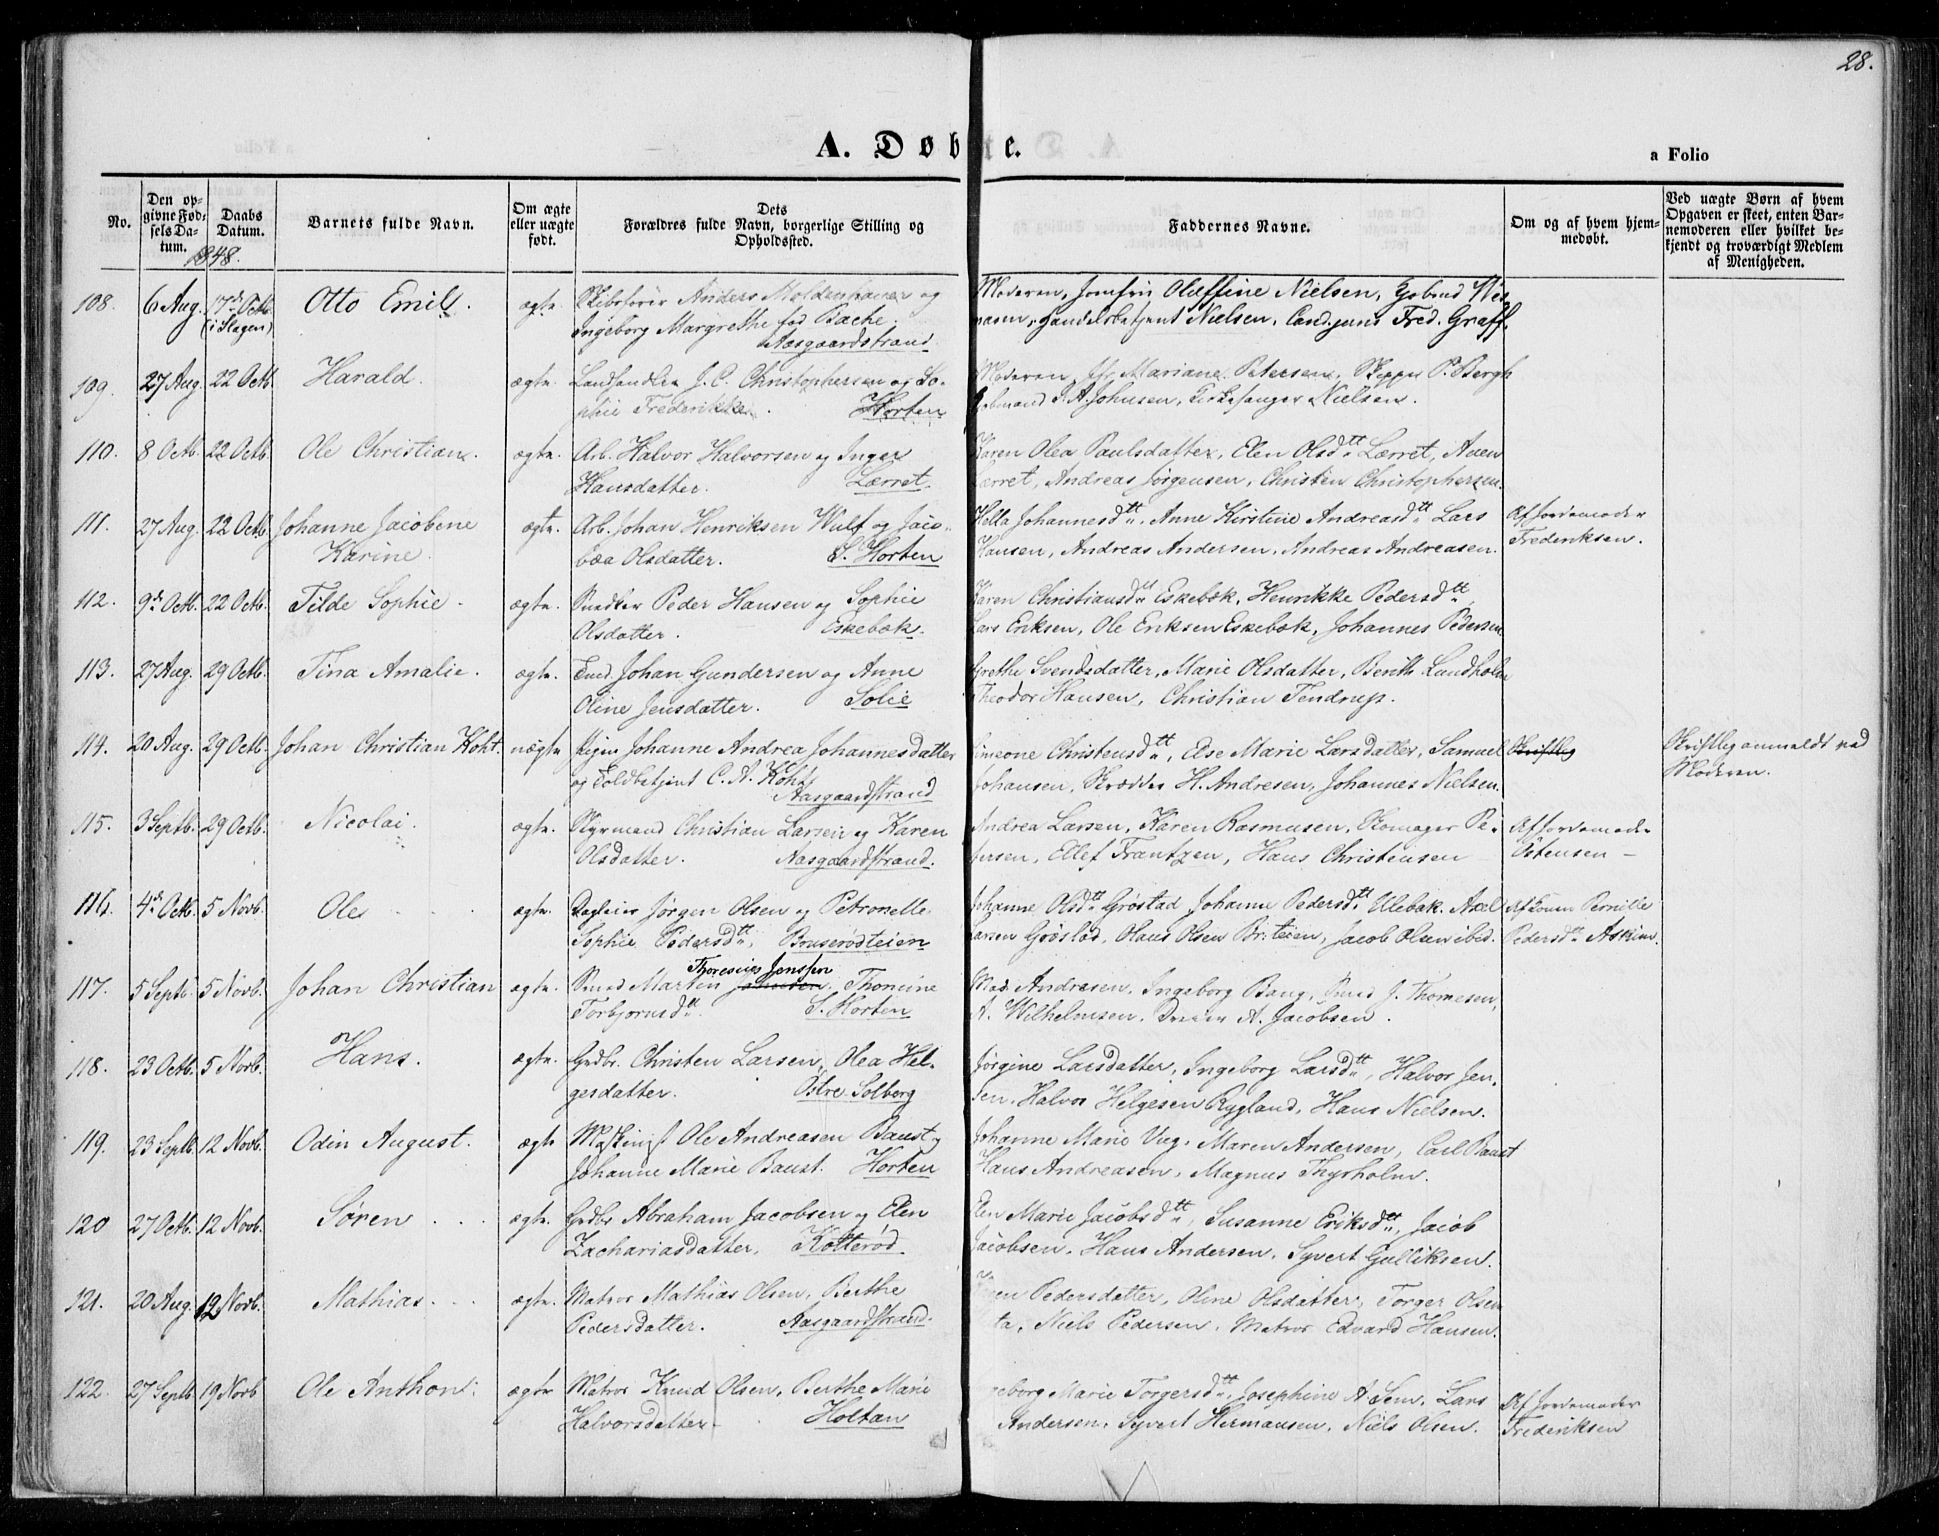 28.
A. Døbte.
a Folio
No.
Den op-
givne Fød-
sels Da-
tum.
Daabs
Datum.
1848.
Barnets fulde Navn.
Om ægte
eller uægte
født.
Dets
Forældres fulde Navn, borgerlige Stilling og
Opholdssted.
Faddernes Navne.
Om og af hvem hjem-
medøbt.
Ved uægte Børn af hvem
Opgaven er skeet, enten Bar-
nemoderen eller hvilket be-
kjendt og troværdigt Medlem
af Menigheden.
108. 6 Aug. 17de Octb. (i Slagen) Otto Emil. ægte. Skibsfører Anders Moldenhauer og
Ingeborg Margrethe fød Bache.
Aasgaardstrand
Moderen, Jomfru Oluffine Nielsen,
Handelsbetjent Nielsen, Cand. juris Fred. Graff.
109. 27 Aug. 22 Octb. Harald. ægte. Landhandler J. C. Christophersen og So-
phie Frederikke. Horten
Moderen, Mariane Petersen, Skipper P. Bergh
Gebmand J. A. Johnsen, Kirkesanger Nielsen.
110. 8 Octb. 22 Octb. Ole Christian. ægte. Arb. Halvor Halvorsen og Inger
Hansdatter. Lærret.
Karen Olea Paulsdatter, Elen Olsdtt Lærret, Aven
Lærret, Andreas Jørgensen, Christen Christophersen.
111. 27 Aug. 22 Octb. Johanne Jacobene
Karine. ægte. Arb. Johan Henriksen Wulf og Jaco-
bea Olsdatter. S. Horten
Hella Johannesdtt. Anne Kirstine Andreasdtt Lars
Hansen, Andreas Andersen, Andreas Andreasen.
Af Jordemoder
Frederiksen.
112. 9de Octb. 22 Octb. Tilde Sophie. ægte. Snedker Peder Hansen og Sophie
Olsdatter. Eskebæk.
Karen Christiansdtt Eskebæk, Henrikke Pedersdtt
Lars Eriksen, Ole Eriksen Eskebæk, Johannes Pedersen
113. 27 Aug. 29 Octb. Tina Amalie. ægte. Johan Gundersen og Anne
Oline Jensdatter. Solie
Grethe Svendsdatter, Marie Olsdatter, Berith Lundholm
Theodor Hansen, Christian Tendrup.
114. 20 Aug. 29 Octb. Johan Christian Koht. uægte. Pigen Johanne Andrea Johannesdatter
og Toldbetjent C. A. Koht
Aasgaardstrand
Simeone Christensdtt, Else Marie Larsdatter, Samuel
Johansen, Skrædder H. Andresen, Johannes Nielsen.
Skriftlig
Skriftlig anmeldt ved
Moderen.
115. 3 Septb. 29 Octb. Nicolai. ægte. Styrmand Christian Larsen og Karen
Olsdatter. Aasgaardstrand.
Andrea Larsen, Karen Rasmusen, Skomager Pe-
tersen, Ellef Frantzen, Hans Christensen
Af Jordemoder
Østensen
116. 4de Octb. 5 Novb. Ole ægte. Dagleier Jørgen Olsen og Petronelle
Sophie Pedersdtt, Bonserødteien
Johanne Olsdtt Grøstad, Johanne Pedersdtt Ulebak. Axel
Larsen Grøstad, Olaus Olsen Br:teien, Jacob Olsen ibid.
Af Konen Pernille
Pedersdtt Askim.
117. 5 Septb. 5 Novb. Johan Christian ægte. Smed Martin Johnsen Thoresius Jenssen, Thomine
Torbjornsdtt. S. Horten
Mad. Andresen, Ingeborg Bang, Smed J. Thomesen,
A. Wilhelmsen. Dreier A. Jacobsen.
118. 23 Octb. 5 Novb. Hans. ægte. Grdbr. Christen Larsen, Olea Hel-
gesdatter. Østre Solberg
Jørgine Larsdatter, Ingeborg Larsdtt, Halvor Jen-
sen. Halvor Helgesen Rygland, Hans Nielsen.
119. 23 Septb. 12 Novb. Odin August. ægte Maskinist Ole Andreasen Baust og
Johanne Marie Baust. Horten
Johanne Marie Vug. Maren Andersen, Carl Baust
Hans Andreasen, Magnus Thyrholm.
120 27 Octb. 12 Novb. Søren ægte. Grdbr Abraham Jacobsen og Elen
Zachariasdatter, Kolterød.
Elen Marie Jacobsdtt, Susanne Eriksdtt, Jacob
Jacobsen. Hans Andersen. Syvert Gulliksen.
121. 20 Aug. 12 Novb. Mathias. ægte. Matros Mathias Olsen, Berthe
Pedersdatter. Aasgaardstrand.
Pedersdatter, Oline Olsdatter, Torger Olsen
Niels Pedersen. Matros Edvard Hansen.
122. 27 Septb. 19 Novb Ole Anthon. ægte Matros Knud Olsen, Berthe Marie
Halvorsdatter Holtan
Marie Torgersdtt, Josephine A. Sem, Lars
Andersen, Syvert Hermansen, Niels Olsen.
Af Jordemoder
Frederiksen